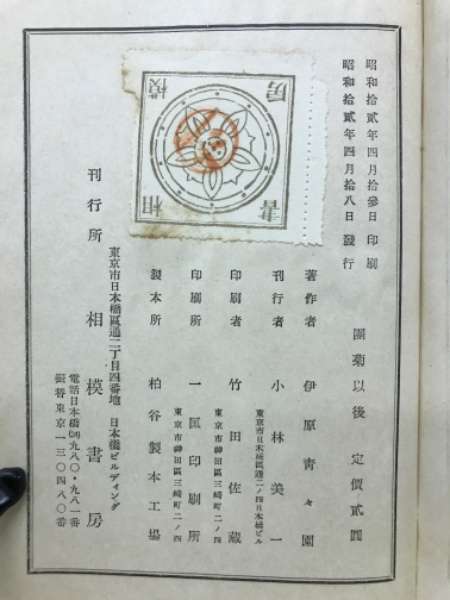 昭和拾貳年四月拾參日 印刷
昭和拾貳年四月拾八日 發行
團菊以後 定價貳圓
著作者 伊原青々園
刊行者 小林美一
東京市日本橋區通二ノ四日本橋ビル
印刷者 竹田佐藏
東京市神田區三崎町二ノ四
印刷所 一匡印刷所
東京市神田區三崎町二ノ四
製本所 柏谷製本工場
東京市日本橋區通二丁目四番地 日本橋ビルディング
刊行所 相模書房
電話日本橋㉔九八〇・九八一番
振替東京一三〇四八〇番
相模書房